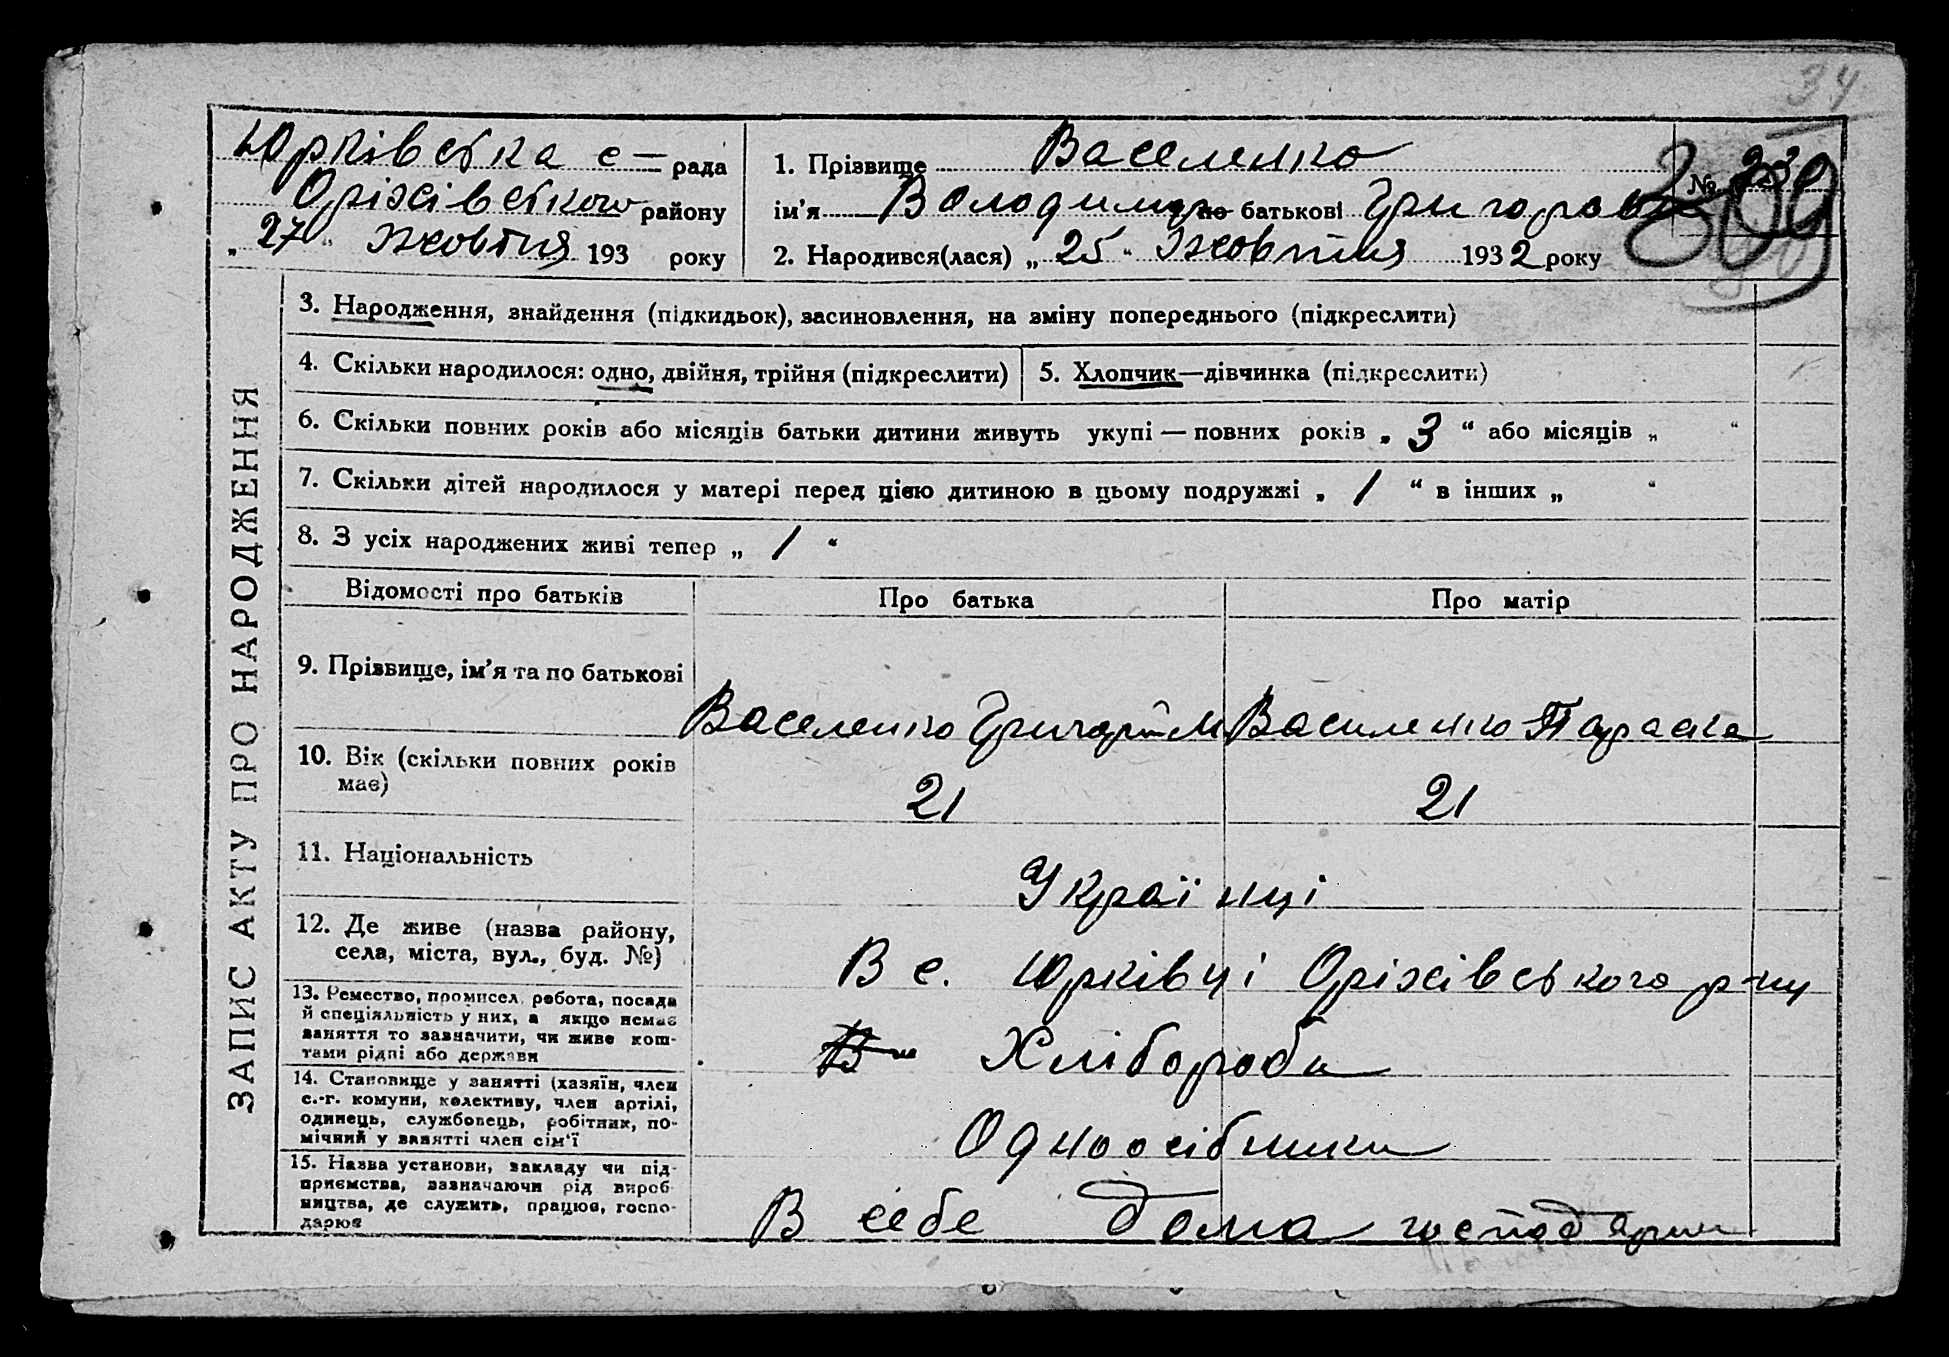 34
Юрківська с- рада
Оріхівського району
„ 27 " Жовтня 193 року
1. Прізвище Василенко
№ 239
ім'я Володимир по батькові Григоров
2. Народився(лася) „ 25 " Жовтня 1932 року
ЗАПИС АКТУ ПРО НАРОДЖЕННЯ
3. Народження, знайдення (підкидьок), засиновлення, на зміну попереднього (підкреслити)
4. Скільки народилося: одно, двійня, трійня (підкреслити)
5. Хлопчик—дівчинка (підкреслити)
6. Скільки повних років або місяців батьки дитини живуть укупі — повних років „ 3 " або місяців „ "
7. Скільки дітей народилося у матері перед цією дитиною в цьому подружжі „ 1 " в інших „ "
8. З усіх народжених живі тепер „ 1 "
Відомості про батьків
Про батька
Про матір
9. Прізвище, ім'я та по батькові
Василенко Василенко Параска
10. Вік (скільки повних років
має)
21 21
11. Національність
Українці
12. Де живе (назва району,
села, міста, вул., буд. №)
В с. Юрківці Оріхівського р-ну
13. Ремество, промисел, робота, посада
й спеціяльність у них, а якщо немає
заняття то зазначити, чи живе кош-
тами рідні або держави
Хлібороби
14. Становище у занятті (хазяїн, член
с.-г. комуни, колективу, член артілі,
одинець, службовець, робітник, по-
мічний у занятті член сім'ї
Одноосібники
15. Назва установи, закладу чи під-
приємства, зазначаючи рід вироб-
ництва, де служить, працює, госпо-
дарює
В себе дома